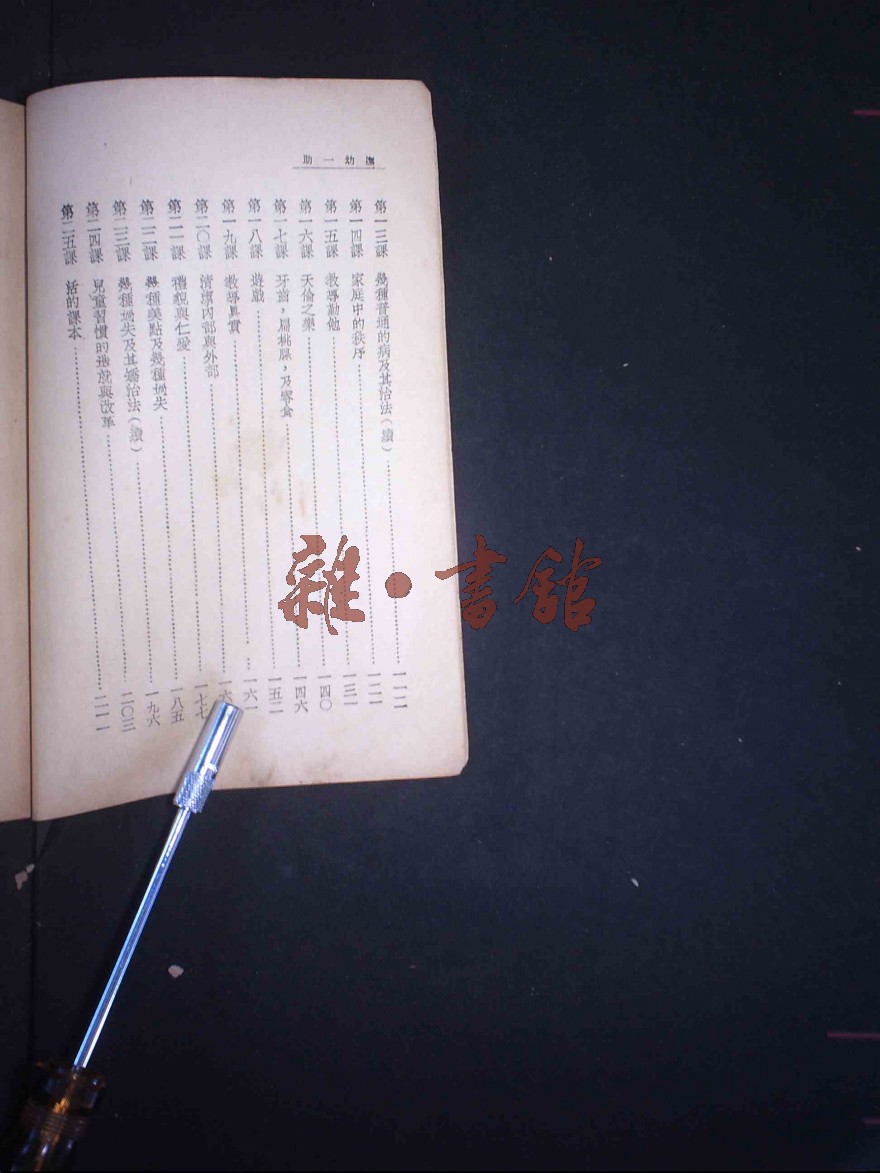 撫幼一助
第一三課 幾種普通的病及其治法(續)……一二二
第一四課 家庭中的秩序……一三一
第一五課 教導勤勉……一四〇
第一六課 天倫之樂……一四六
第一七課 牙齒,扁桃腺,及零食……一五二
第一八課 遊戲……一六一
第一九課 教導真實……一六
第二〇課 清潔內部與外部……一七七
第二一課 禮貌與仁愛……一八五
第二二課 幾種美點及幾種過失……一九六
第二三課 幾種過失及其矯治法(續)……二〇三
第二四課 兒童習慣的造就與改革
第二五課 活的課本
雜·書館